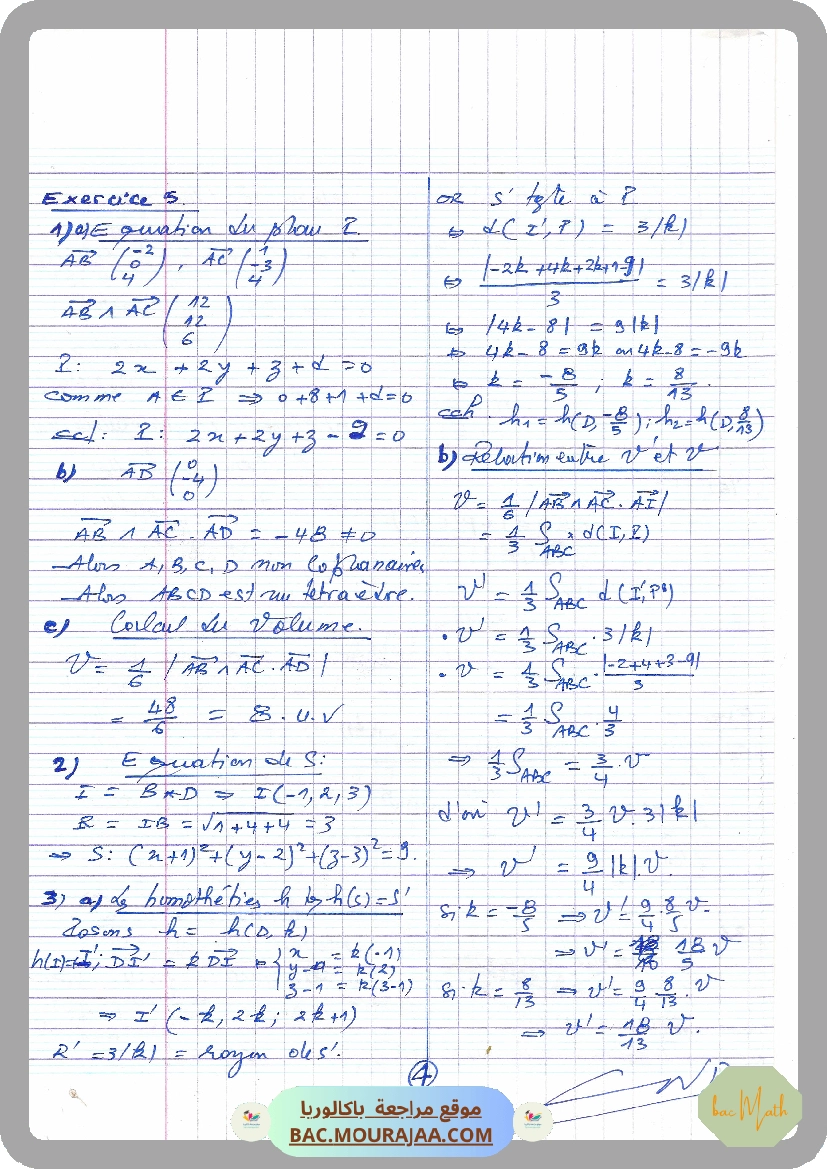 Exercice 5.
1) a) Equation du plan P.
AB (-2 0 4), AC (1 -3 4)
AB ∧ AC (12 12 6)
P: 2x + 2y + z + d = 0
comme A ∈ P ⇒ 0+8+1+d=0
ccl: P: 2x+2y+z-9=0
b) AD (0 -4 0)
AB ∧ AC . AD = -48 ≠ 0
-Alors A, B, C, D non Coplanaires
-Alors ABCD est un tétraèdre.
c) Calcul du Volume.
V = 1/6 |AB ∧ AC . AD|
= 48/6 = 8 . u.v
2) Equation de S:
I = B*D ⇒ I(-1, 2, 3)
R = IB = √1+4+4 = 3
⇒ S: (x+1)²+(y-2)²+(z-3)²=9.
3) a) Les homothéties h tq h(S)=S'
Posons h = h(D, k)
h(I)=I'; DI' = k DI ⇔ { x = k(-1)
y = k(2)
z-1 = k(3-1)
⇒ I' (-k, 2k; 2k+1)
R' = 3|k| = rayon de S'.
OR S' tgte à P
⇔ d(I', P) = 3|k|
⇔ |-2k+4k+2k+1-9| / 3 = 3|k|
⇔ |4k-8| = 9|k|
⇔ 4k-8 = 9k ou 4k-8 = -9k
⇔ k = -8/5 ; k = 8/13.
ccl. h₁=h(D,-8/5); h₂=h(D,8/13)
b) Relation entre V' et V
V = 1/6 |AB ∧ AC . AI|
= 1/3 S_ABC × d(I, P)
V' = 1/3 S_ABC d(I', P)
. V' = 1/3 S_ABC . 3|k|
. V = 1/3 S_ABC . |-2+4+3-9| / 3
= 1/3 S_ABC . 4/3
⇒ 1/3 S_ABC = 3/4 . V
d'où V' = 3/4 V. 3|k|
⇒ V' = 9/4 |k|.V.
Si k = -8/5 ⇒ V' = 9/4 . 8/5 V.
⇒ V' = 18/5 V
Si k = 8/13 ⇒ V' = 9/4 . 8/13 . V
⇒ V' = 18/13 V.
4
موقع مراجعة باكالوريا
BAC.MOURAJAA.COM
bac Math